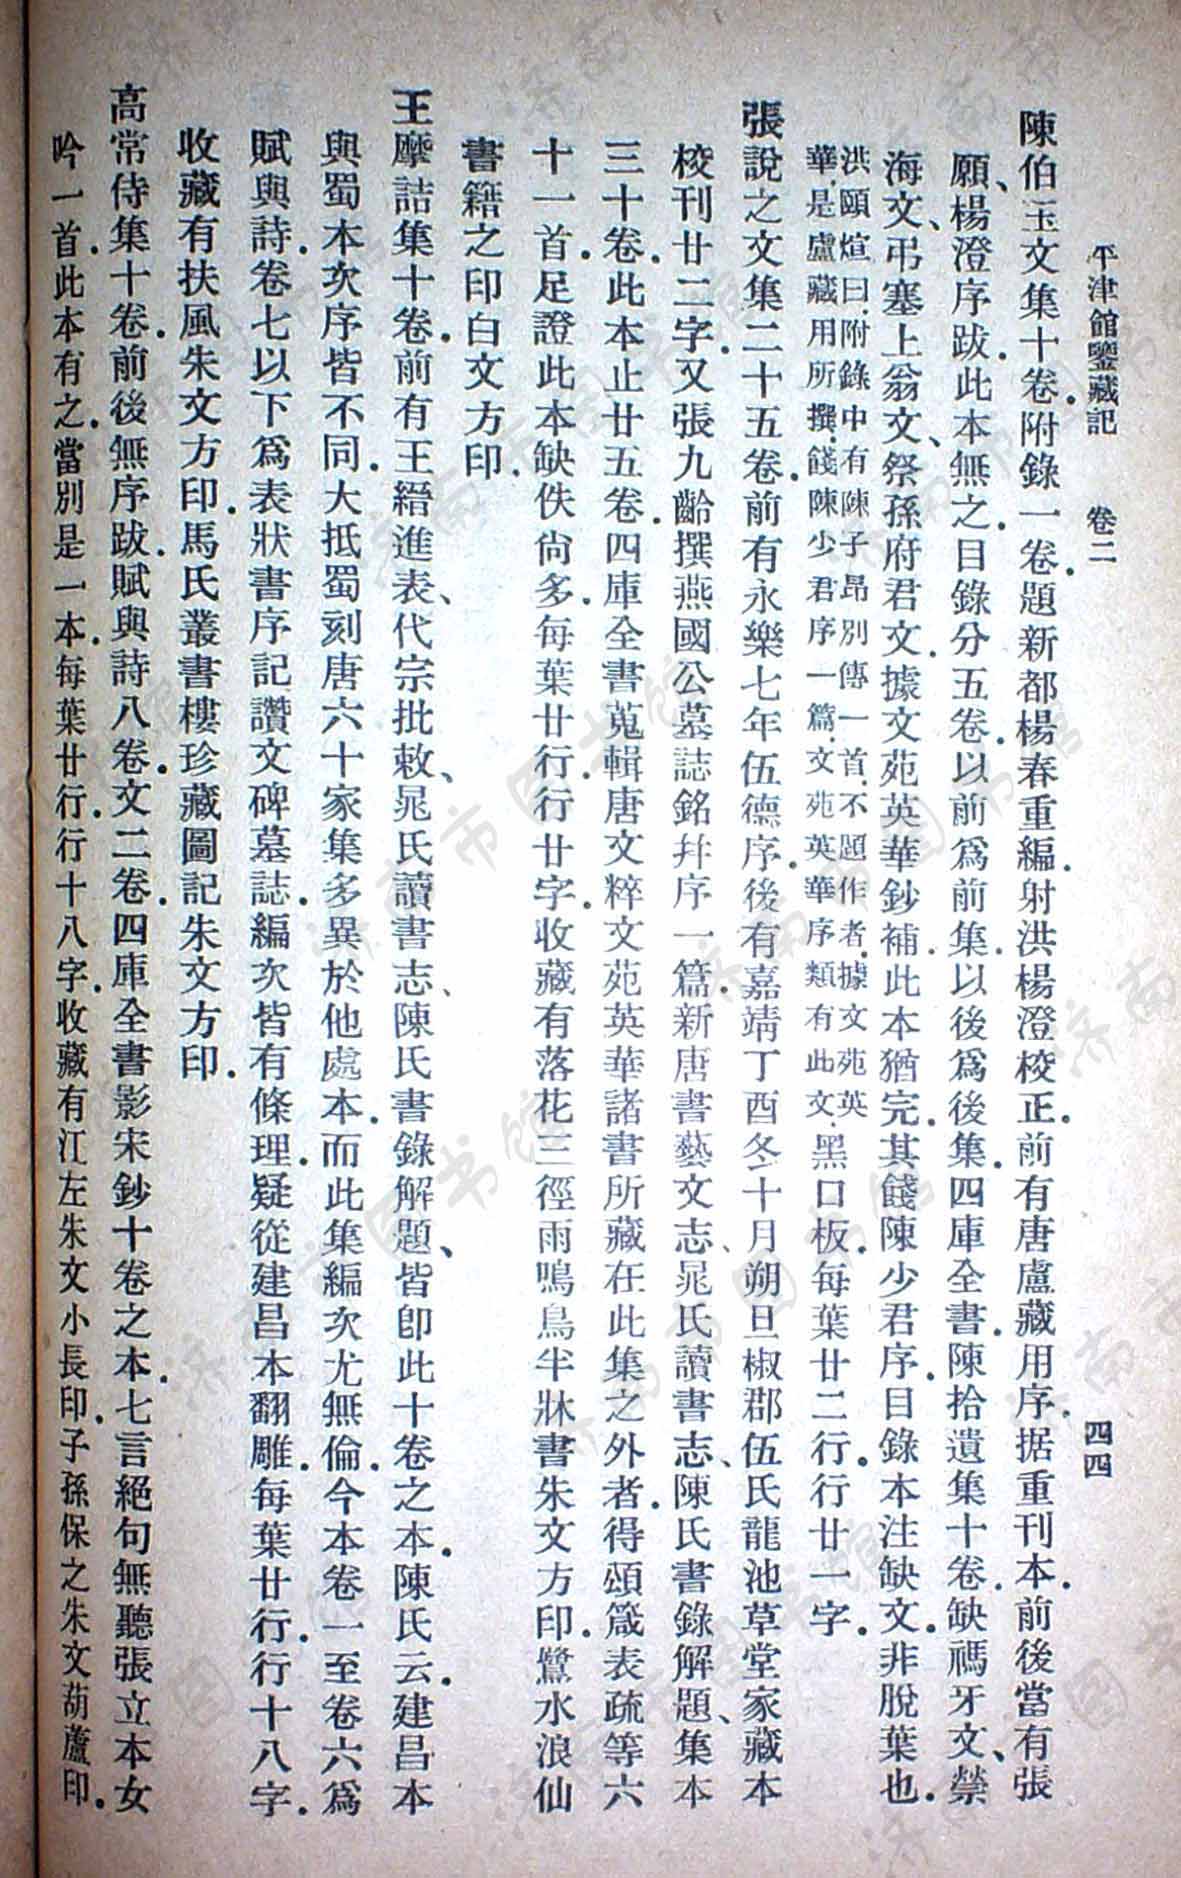 平津館鑒藏記　卷二　四四
陳伯玉文集十卷.附錄一卷.題新都楊春重編.射洪楊澄校正.前有唐盧藏用序.据重刊本.前後當有張
願、楊澄序跋.此本無之.目錄分五卷.以前爲前集.以後爲後集.四庫全書.陳拾遺集十卷.缺禡牙文、禜
海文、弔塞上翁文、祭孫府君文.據文苑英華鈔補.此本猶完.其餞陳少君序.目錄本注缺文.非脫葉也.
洪頤煊曰.附錄中有陳子昂別傳一首.不題作者.據文苑英
華.是盧藏用所撰.餞陳少君序一篇.文苑英華序類有此文.黑口板.每葉廿二行.行廿一字.
張說之文集二十五卷.前有永樂七年伍德序.後有嘉靖丁酉冬十月朔旦椒郡伍氏龍池草堂家藏本
校刊廿二字.又張九齡撰燕國公墓誌銘幷序一篇.新唐書藝文志、晁氏讀書志、陳氏書錄解題、集本
三十卷.此本止廿五卷.四庫全書蒐輯唐文粹文苑英華諸書所藏在此集之外者.得頌箴表疏等六
十一首.足證此本缺佚尙多.每葉廿行.行廿字.收藏有落花三徑雨鳴鳥半牀書朱文方印.鷺水浪仙
書籍之印白文方印.
王摩詰集十卷.前有王縉進表、代宗批敕、晁氏讀書志、陳氏書錄解題、皆卽此十卷之本.陳氏云.建昌本
與蜀本次序皆不同.大抵蜀刻唐六十家集多異於他處本.而此集編次尤無倫.今本卷一至卷六爲
賦與詩.卷七以下爲表狀書序記讚文碑墓誌.編次皆有條理.疑從建昌本翻雕.每葉廿行.行十八字.
收藏有扶風朱文方印.馬氏叢書樓珍藏圖記朱文方印.
高常侍集十卷.前後無序跋.賦與詩八卷.文二卷.四庫全書影宋鈔十卷之本.七言絕句無聽張立本女
吟一首.此本有之.當別是一本.每葉廿行.行十八字.收藏有江左朱文小長印.子孫保之朱文葫蘆印.